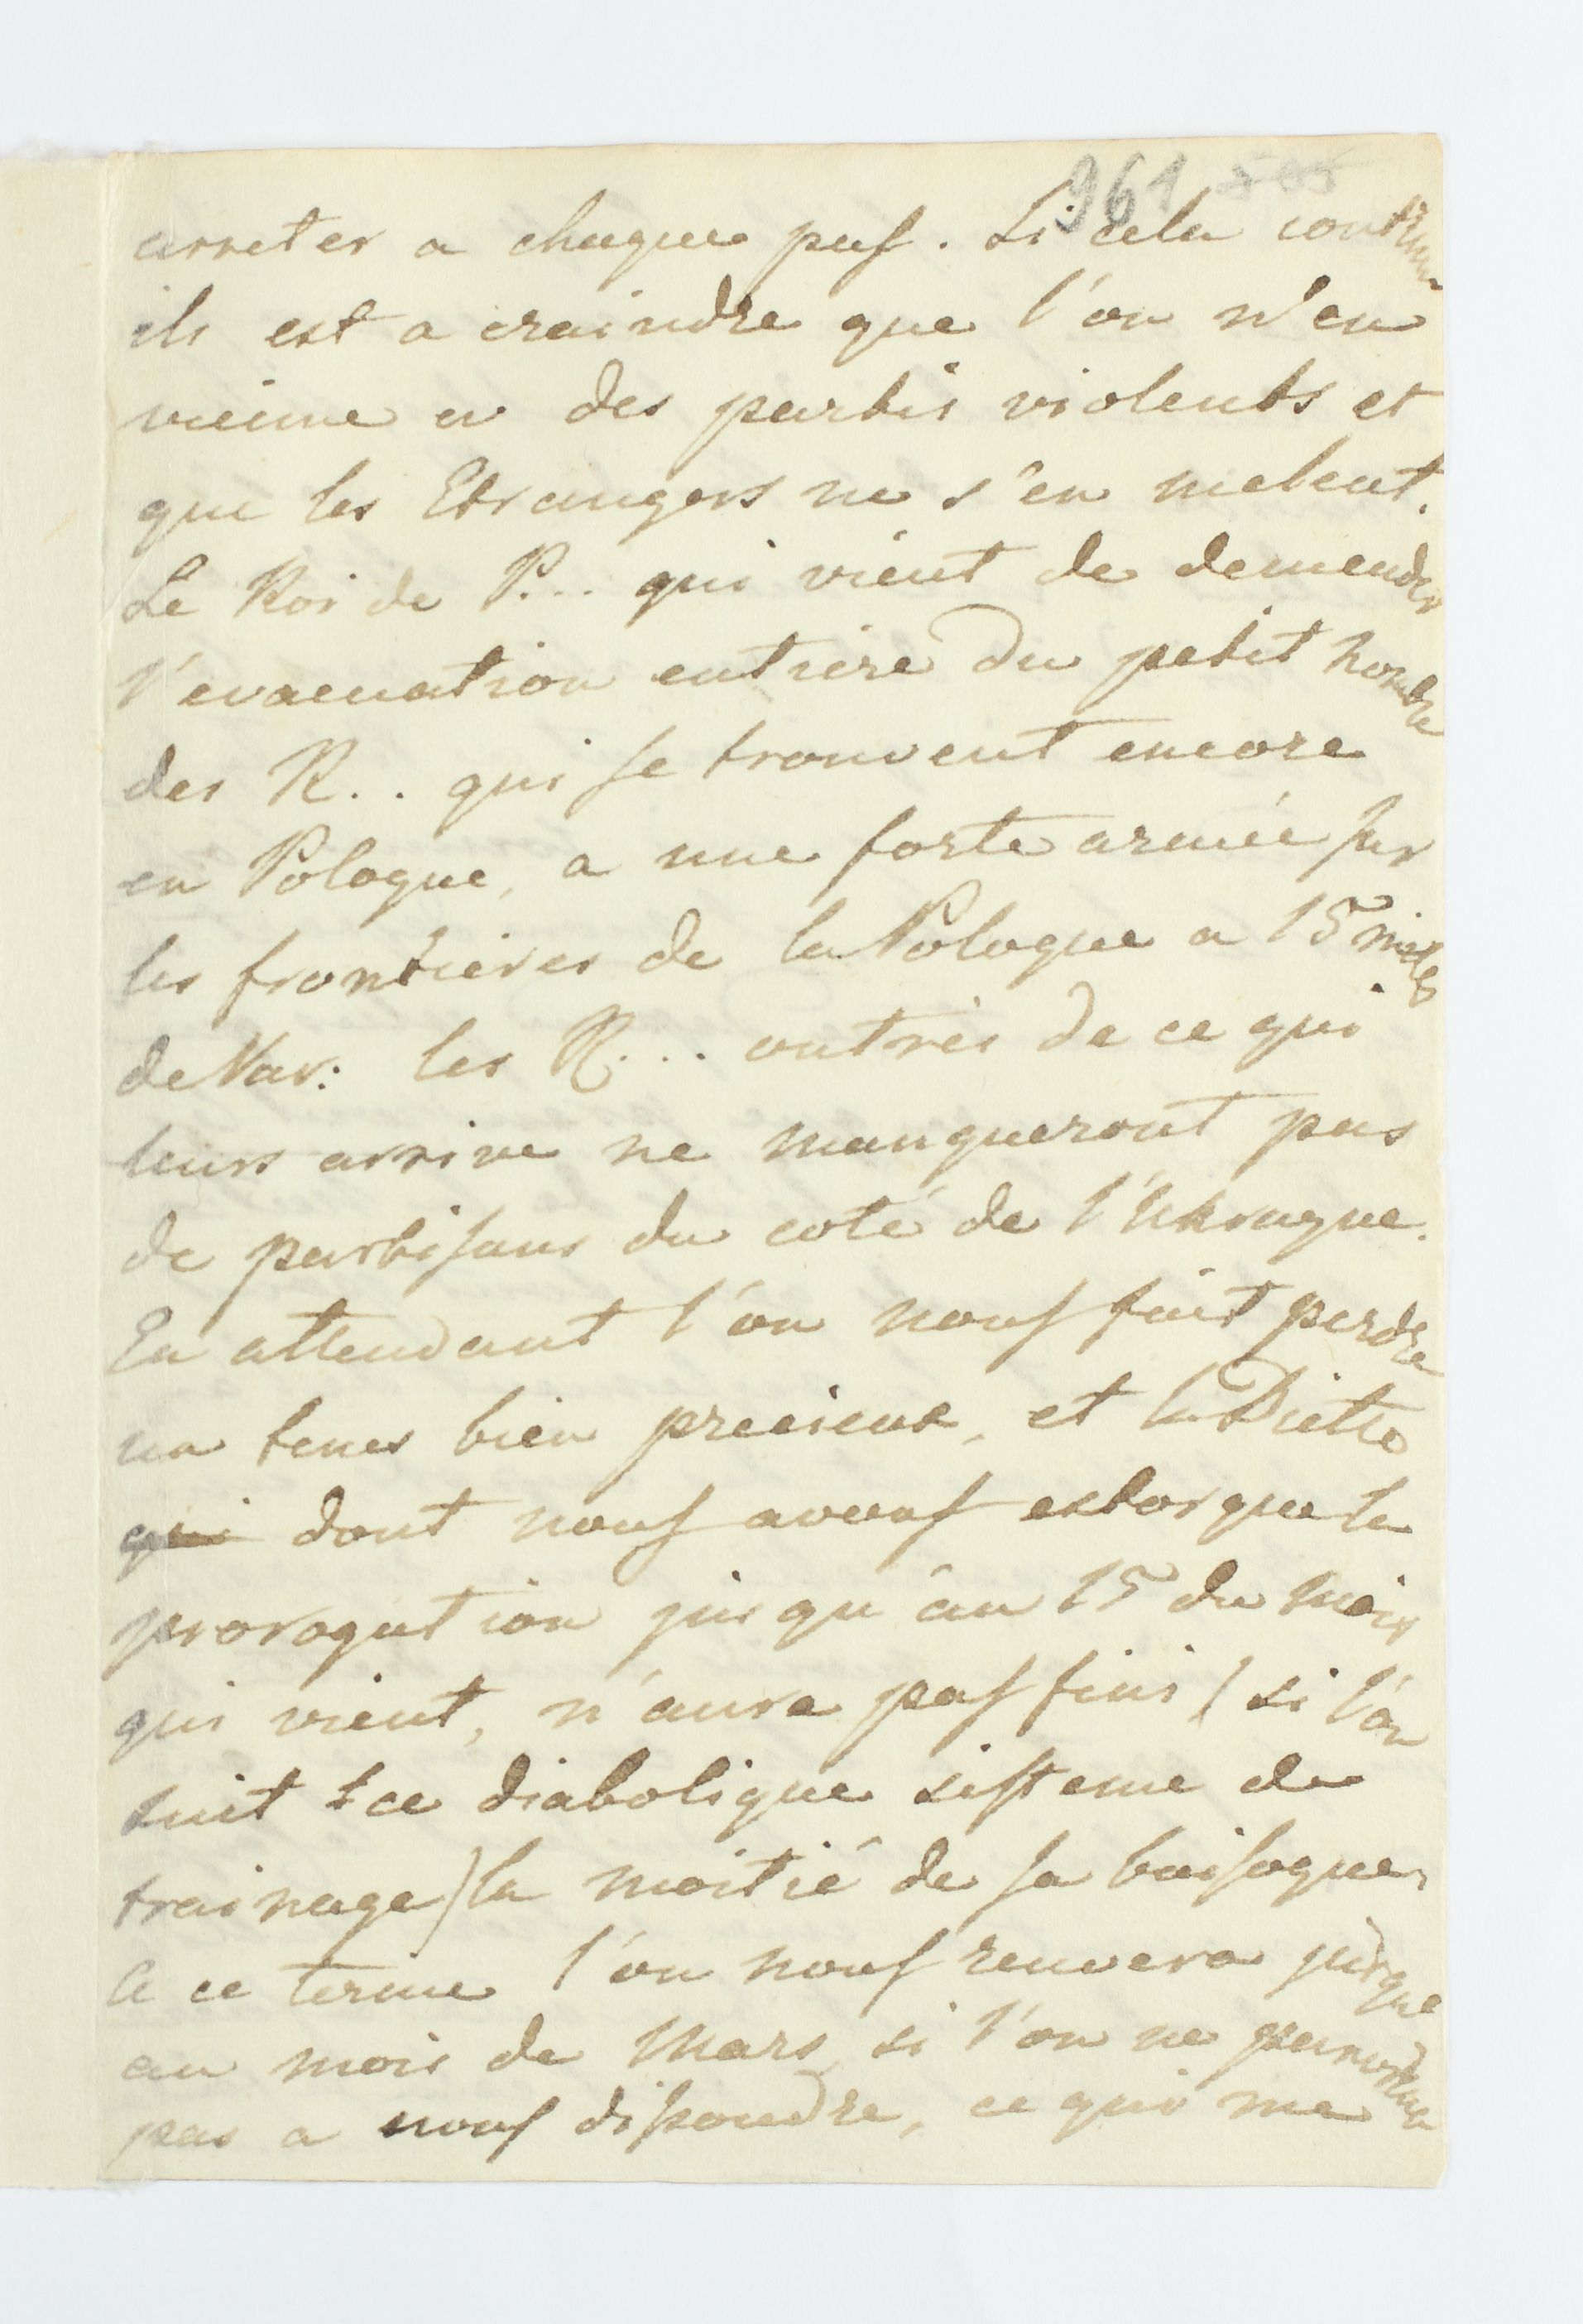 961
arreter a chaque pas. Si cela continue
ils est a craindre que l'on n'en
vienne a des partis violents et
que les Etrangers ne s'en melent.
Le Roi de P... qui vient de demender
l'evacuation entiere du petit nombre
des R.. qui se trouvent encore
en Pologne, a une forte armée sur
les frontieres de la Pologne a 15 miles
de Var: les R... outrés de ce qui
leurs arrive ne manqueront pas
de partisans du coté de l'Ukragne.
En attendant l'on nous fait perdre
un tems bien precieux, et la Diette
qui dont nous avons extorque la
prorogation jusqu'au 15 du mois
qui vient, n'aura pas fini (si l'on
suit ce diabolique sisteme de
trainage) la moitié de sa baisogne,
a ce terme l'on nous renvera jusque
au mois de Mars, si l'on ne parvienne
pas a nous dissoudre, ce qui me